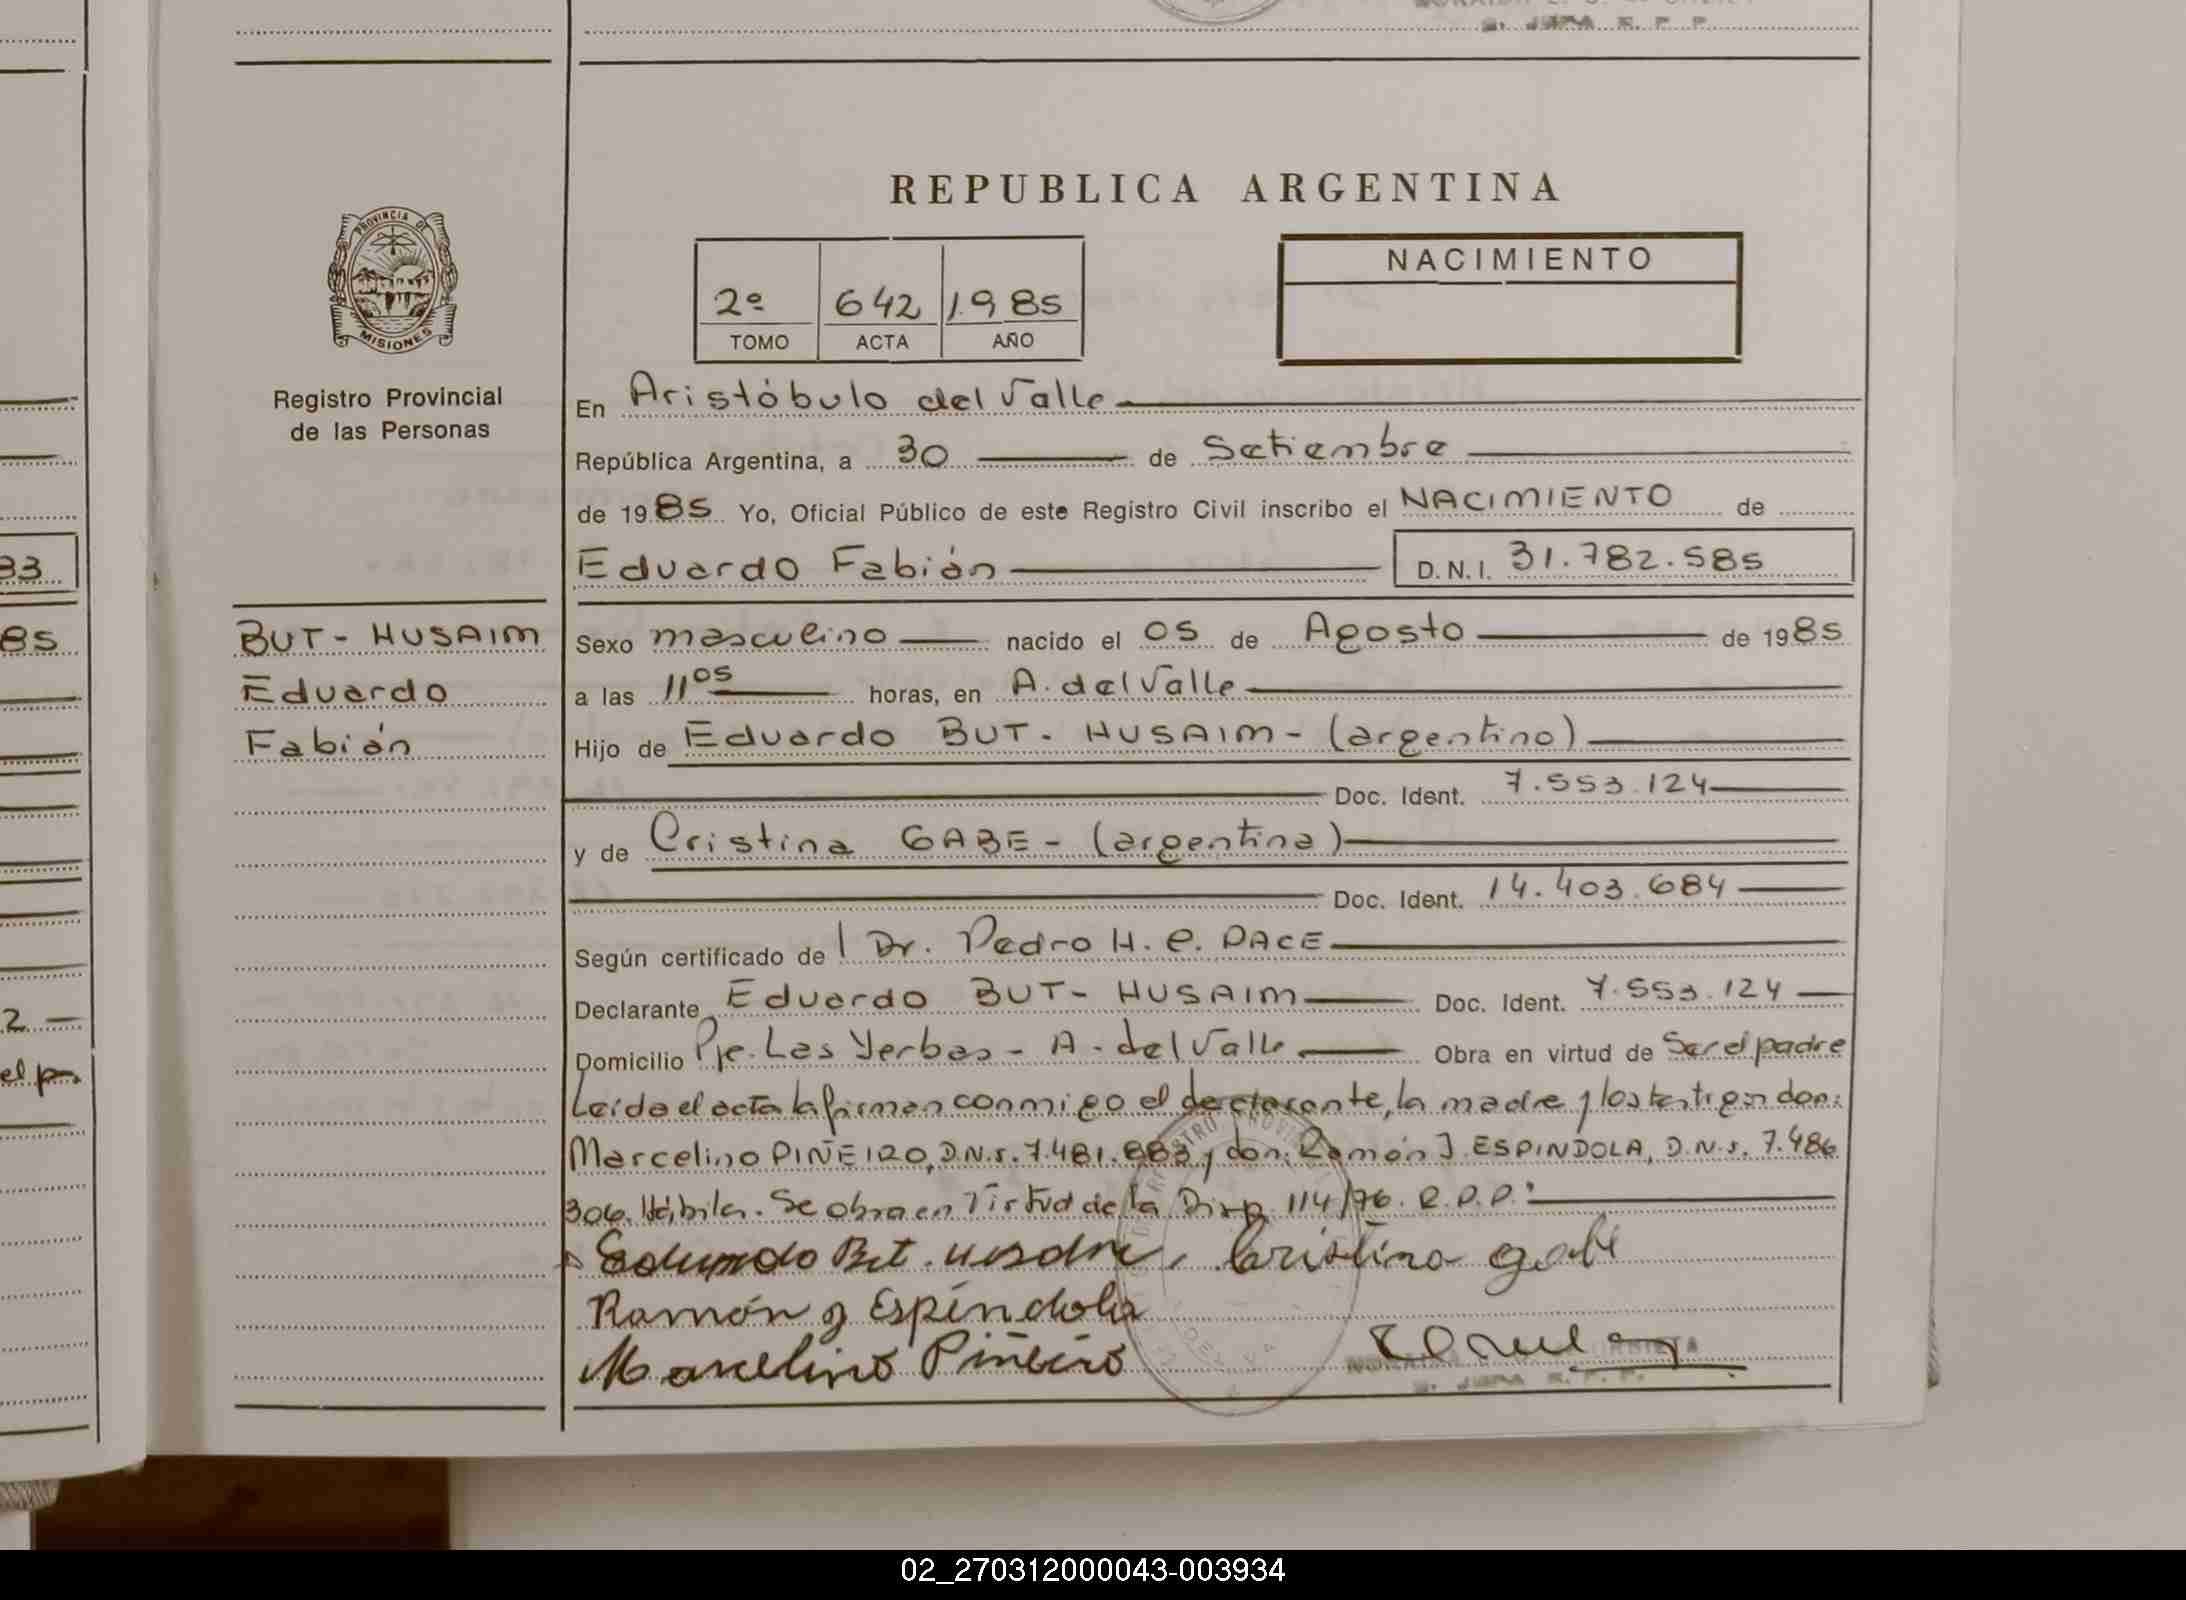 REPUBLICA ARGENTINA
PROVINCIA DE
MISIONES
Registro Provincial
de las Personas
2º 642 1.985
TOMO ACTA AÑO
NACIMIENTO
En Aristóbulo del Valle
República Argentina, a 30 de Setiembre
de 1985 Yo, Oficial Público de este Registro Civil inscribo el NACIMIENTO de
Eduardo Fabián D.N.I. 31.782.585
BUT - HUSAIM
Eduardo
Fabián
Sexo masculino nacido el 05 de Agosto de 1985
a las 11 05 horas, en A. del Valle
Hijo de Eduardo BUT - HUSAIM - (argentino)
Doc. Ident. 7.553.124
y de Cristina GABE - (argentina)
Doc. Ident. 14.403.684
Según certificado de l Dr. Pedro H. C. PACE
Declarante Eduardo BUT - HUSAIM Doc. Ident. 7.553.124
Domicilio Pje. Las Yerbas - A. del Valle Obra en virtud de Ser el padre
Leída el acta la firman conmigo el declarante, la madre y los testigos don:
Marcelino PIÑEIRO, D.N.I. 7.481.883 y don: Ramón J. ESPINDOLA, D.N.I. 7.486
306. Hábiles. Se obra en Virtud de la Disp. 114/76. R.P.P.
Eduardo But. Cristina gabe
Ramón J Espíndola
Marcelino Piñeiro
02_270312000043-003934